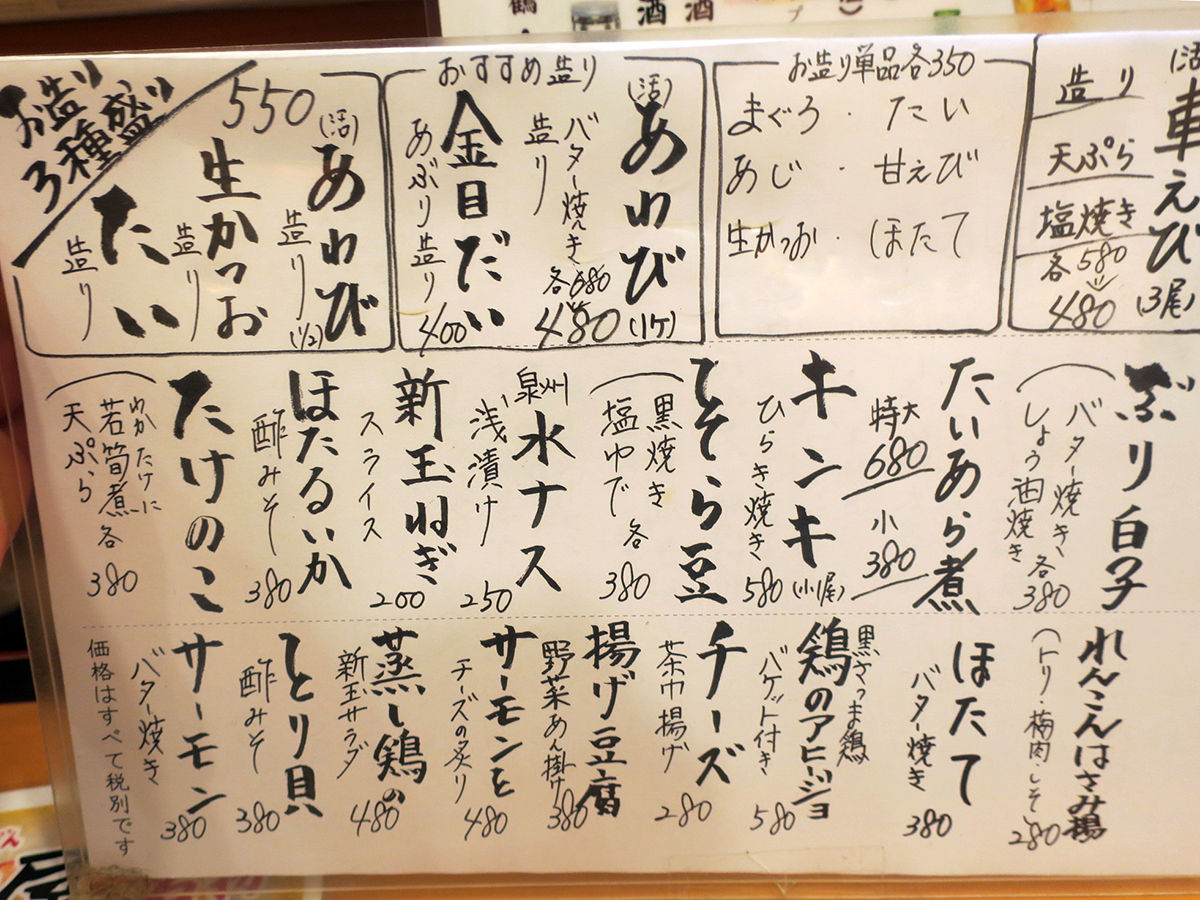 (活)
車えび
(3尾)
造り
天ぷら
塩焼き
各580
480
お造り単品各350
まぐろ・たい
あじ・甘えび
生かつお・ほたて
おすすめ造り
(活)
あわび
(1ケ)
バター焼き
造り
各680
480
金目だい
あぶり造り
400
お造り
3種盛り
550
(活)
あわび
造り
(1/2)
生かつお
造り
たい
造り
ぶり白子
バター焼き
しょう油焼き
各380
たいあら煮
特大
680
小
380
キンキ
(小1尾)
ひらき焼き
580
ひそら豆
黒焼き
塩ゆで
各
380
泉州
水ナス
浅漬け
250
新玉ねぎ
スライス
200
ほたるいか
酢みそ
380
たけのこ
わかたけに
若筍煮
天ぷら
各
380
れんこんはさみ揚
(トリ・梅肉しそ)
280
ほたて
バター焼き
380
黒さつま鶏
鶏のアヒージョ
バゲット付き
580
チーズ
茶巾揚げ
280
揚げ豆腐
野菜あん掛け
380
サーモンと
チーズの炙り
480
蒸し鶏の
新玉サラダ
480
とり貝
酢みそ
380
サーモン
バター焼き
380
価格はすべて税別です
鶴
酒
酒